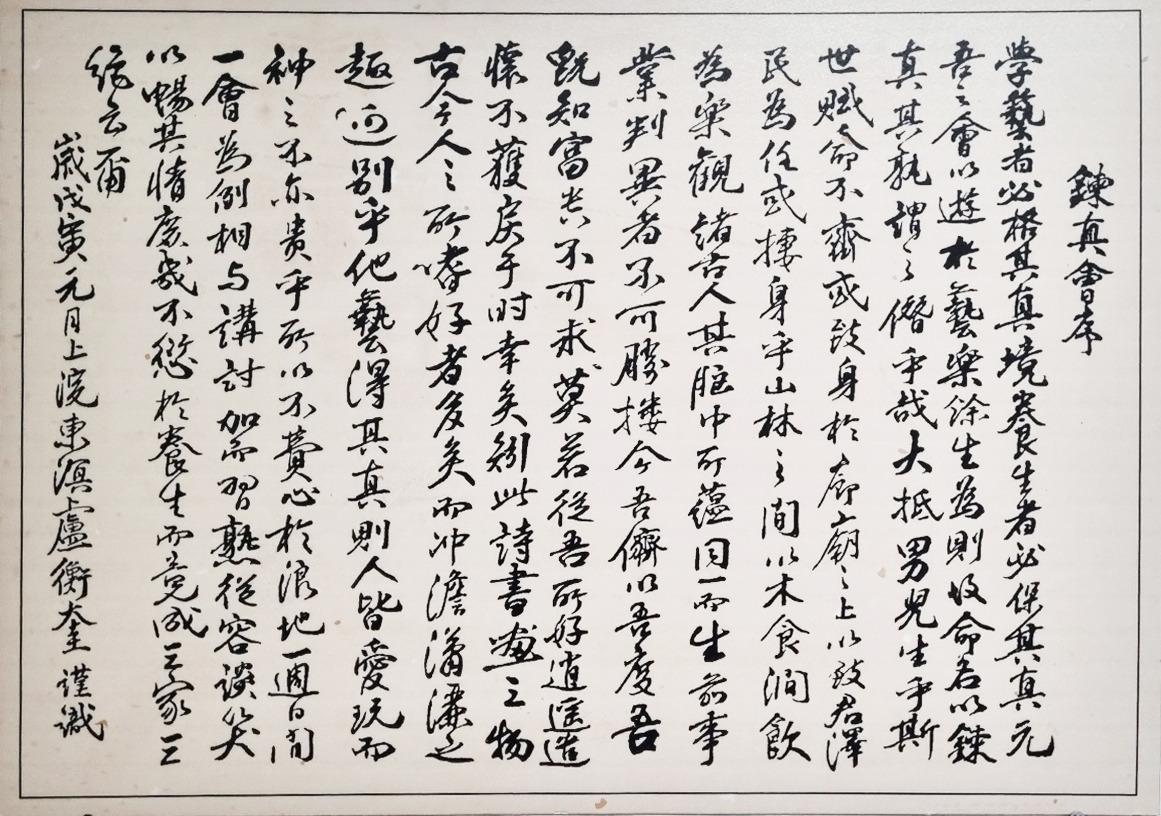 鍊真會序
學藝者必格其真境養生者必保其真元
吾之會以遊於藝樂餘生為則故命名以鍊
真其孰謂之僭乎哉大抵男兒生乎斯
世賦命不齊或致身於廊廟之上以致君澤
民為任或捿身乎山林之間以木食澗飲
為樂觀諸古人其胸中所蘊同一而生前事
業判異者不可勝摟今吾儕以吾度吾
旣知富貴不可求莫若從吾所好逍遥造
懷不獲戾于时幸矣矧此詩書畵三物
古今人之所嗜好者多矣而冲澹瀟灑之
趣逈別乎他藝得其真則人皆愛玩而
神之不亦貴乎所以不費心於浪地一週日間
一會為例相与講討加而習熟從容談笑
以暢其情庶幾不愆於養生而竟成三家三
絶云爾
歲戊寅元月上浣東溟盧衡奎謹識